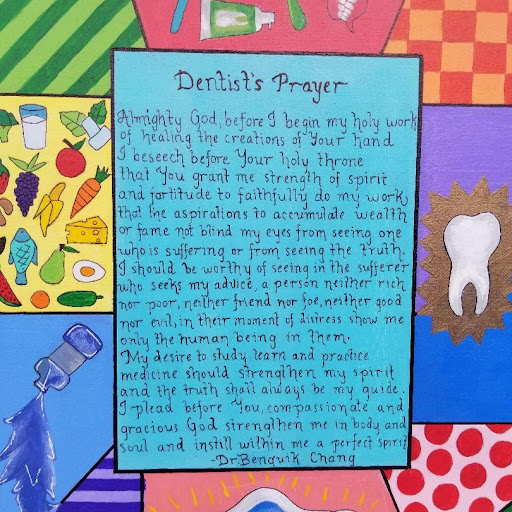 Dentist's Prayer
Almighty God, before I begin my holy work
of healing the creations of Your hand
I beseech before Your holy throne
that You grant me strength of spirit
and fortitude to faithfully do my work,
that the aspirations to accumulate wealth
or fame not blind my eyes from seeing one
who is suffering or from seeing the truth.
I should be worthy of seeing in the sufferer
who seeks my advice, a person neither rich
nor poor, neither friend nor foe, neither good
nor evil, in their moment of distress show me
only the human being in them.
My desire to study, learn and practice
medicine should strengthen my spirit
and the truth shall always be my guide.
I plead before You, compassionate and
gracious God strengthen me in body and
soul and instill within me a perfect spirit
-Dr. Benquik Chang